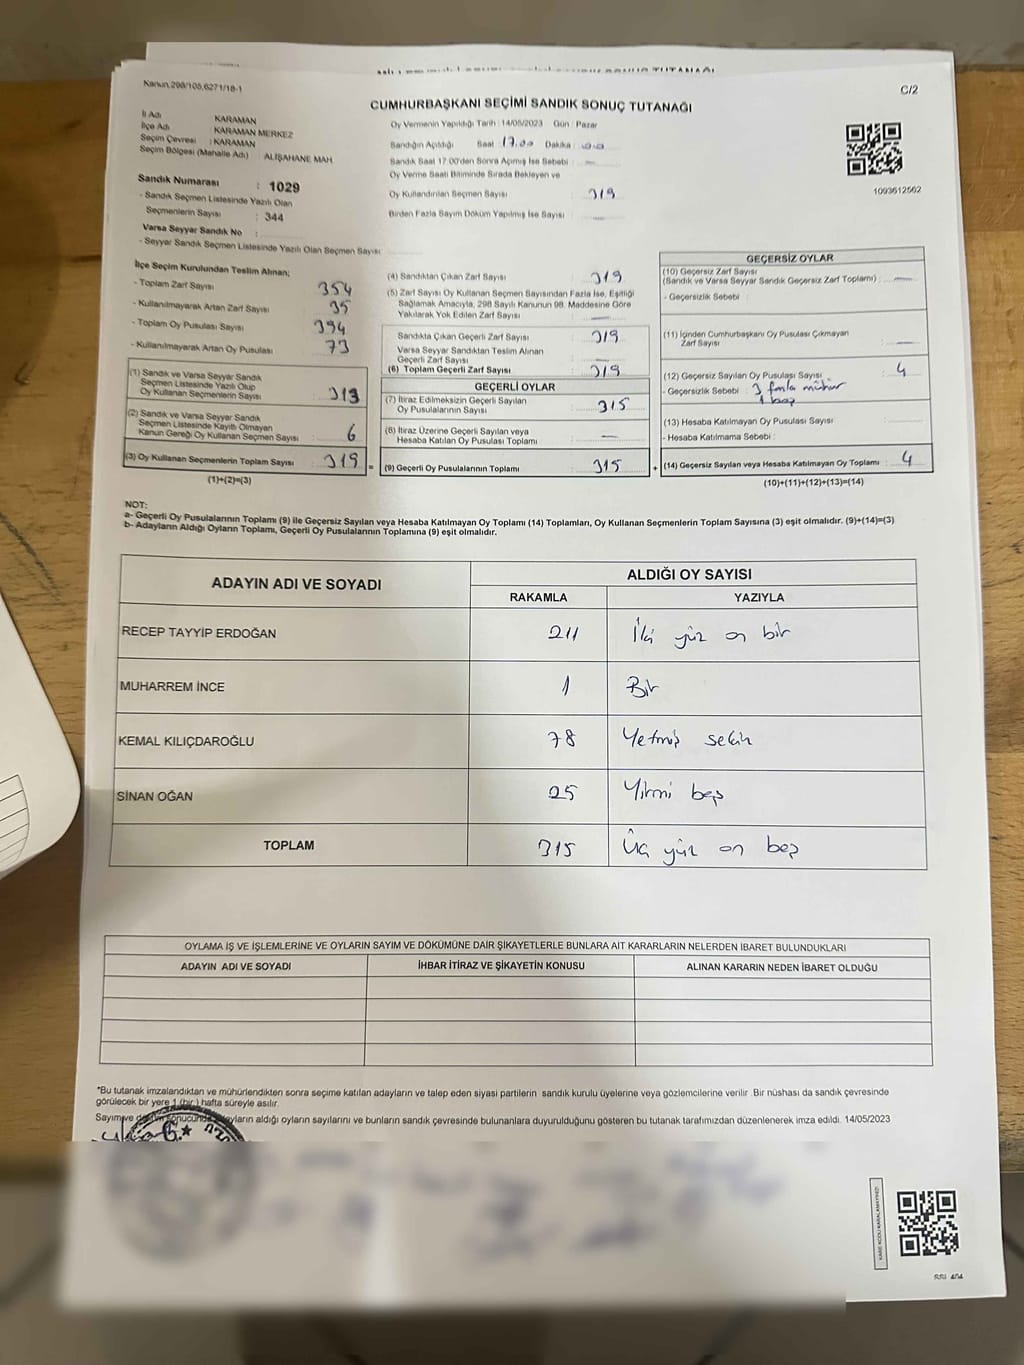 Kanun.298/105,6271/18-1
C/2
CUMHURBAŞKANI SEÇİMİ SANDIK SONUÇ TUTANAĞI
İl Adı KARAMAN
İlçe Adı KARAMAN MERKEZ
Seçim Çevresi : KARAMAN
Seçim Bölgesi (Mahalle Adı) : ALİŞAHANE MAH
Sandık Numarası : 1029
- Sandık Seçmen Listesinde Yazılı Olan
Seçmenlerin Sayısı : 344
Varsa Seyyar Sandık No :
- Seyyar Sandık Seçmen Listesinde Yazılı Olan Seçmen Sayısı
Oy Vermenin Yapıldığı Tarih : 14/05/2023 Gün : Pazar
Sandığın Açıldığı Saat : 17.00 Dakika : 00
Sandık Saat 17:00'den Sonra Açımış İse Sebebi : —
Oy Verme Saati Bitiminde Sırada Bekleyen ve
Oy Kullandırılan Seçmen Sayısı : 319
Birden Fazla Sayım Döküm Yapılmış İse Sayısı : —
1093612562
İlçe Seçim Kurulundan Teslim Alınan;
- Toplam Zarf Sayısı 354
- Kullanılmayarak Artan Zarf Sayısı 35
- Toplam Oy Pusulası Sayısı 394
- Kullanılmayarak Artan Oy Pusulası 73
(1) Sandık ve Varsa Seyyar Sandık
Seçmen Listesinde Yazılı Olup
Oy Kullanan Seçmenlerin Sayısı : 313
(2) Sandık ve Varsa Seyyar Sandık
Seçmen Listesinde Kayıtlı Olmayan
Kanun Gereği Oy Kullanan Seçmen Sayısı : 6
(3) Oy Kullanan Seçmenlerin Toplam Sayısı : 319 =
(1)+(2)=(3)
(4) Sandıktan Çıkan Zarf Sayısı : 319
(5) Zarf Sayısı Oy Kullanan Seçmen Sayısından Fazla İse, Eşitliği
Sağlamak Amacıyla, 298 Sayılı Kanunun 98. Maddesine Göre
Yakılarak Yok Edilen Zarf Sayısı : —
Sandıkta Çıkan Geçerli Zarf Sayısı : 319
Varsa Seyyar Sandıktan Teslim Alınan
Geçerli Zarf Sayısı : —
(6) Toplam Geçerli Zarf Sayısı : 319
GEÇERLİ OYLAR
(7) İtiraz Edilmeksizin Geçerli Sayılan
Oy Pusulalarının Sayısı : 315
(8) İtiraz Üzerine Geçerli Sayılan veya
Hesaba Katılan Oy Pusulası Toplamı : —
(9) Geçerli Oy Pusulalarının Toplamı : 315 +
GEÇERSİZ OYLAR
(10) Geçersiz Zarf Sayısı
(Sandık ve Varsa Seyyar Sandık Geçersiz Zarf Toplamı) : —
- Geçersizlik Sebebi :
(11) İçinden Cumhurbaşkanı Oy Pusulası Çıkmayan
Zarf Sayısı : —
(12) Geçersiz Sayılan Oy Pusulası Sayısı : 4
- Geçersizlik Sebebi : 3 fazla mühür
1 boş
(13) Hesaba Katılmayan Oy Pusulası Sayısı :
- Hesaba Katılmama Sebebi :
(14) Geçersiz Sayılan veya Hesaba Katılmayan Oy Toplamı : 4
(10)+(11)+(12)+(13)=(14)
NOT:
a- Geçerli Oy Pusulalarının Toplamı (9) ile Geçersiz Sayılan veya Hesaba Katılmayan Oy Toplamı (14) Toplamları, Oy Kullanan Seçmenlerin Toplam Sayısına (3) eşit olmalıdır. (9)+(14)=(3)
b- Adayların Aldığı Oyların Toplamı, Geçerli Oy Pusulalarının Toplamına (9) eşit olmalıdır.
ADAYIN ADI VE SOYADI ALDIĞI OY SAYISI
RAKAMLA YAZIYLA
RECEP TAYYİP ERDOĞAN 211 İki yüz on bir
MUHARREM İNCE 1 Bir
KEMAL KILIÇDAROĞLU 78 Yetmiş sekiz
SİNAN OĞAN 25 Yirmi beş
TOPLAM 315 Üç yüz on beş
OYLAMA İŞ VE İŞLEMLERİNE VE OYLARIN SAYIM VE DÖKÜMÜNE DAİR ŞİKAYETLERLE BUNLARA AİT KARARLARIN NELERDEN İBARET BULUNDUKLARI
ADAYIN ADI VE SOYADI İHBAR İTİRAZ VE ŞİKAYETİN KONUSU ALINAN KARARIN NEDEN İBARET OLDUĞU
*Bu tutanak imzalandıktan ve mühürlendikten sonra seçime katılan adayların ve talep eden siyasi partilerin sandık kurulu üyelerine veya gözlemcilerine verilir. Bir nüshası da sandık çevresinde
görülecek bir yere 1 (bir) hafta süreyle asılır.
Sayım ve döküm sonucunda adayların aldığı oyların sayılarını ve bunların sandık çevresinde bulunanlara duyurulduğunu gösteren bu tutanak tarafımızdan düzenlenerek imza edildi. 14/05/2023
KARE KODU KARALAMAYINIZ!